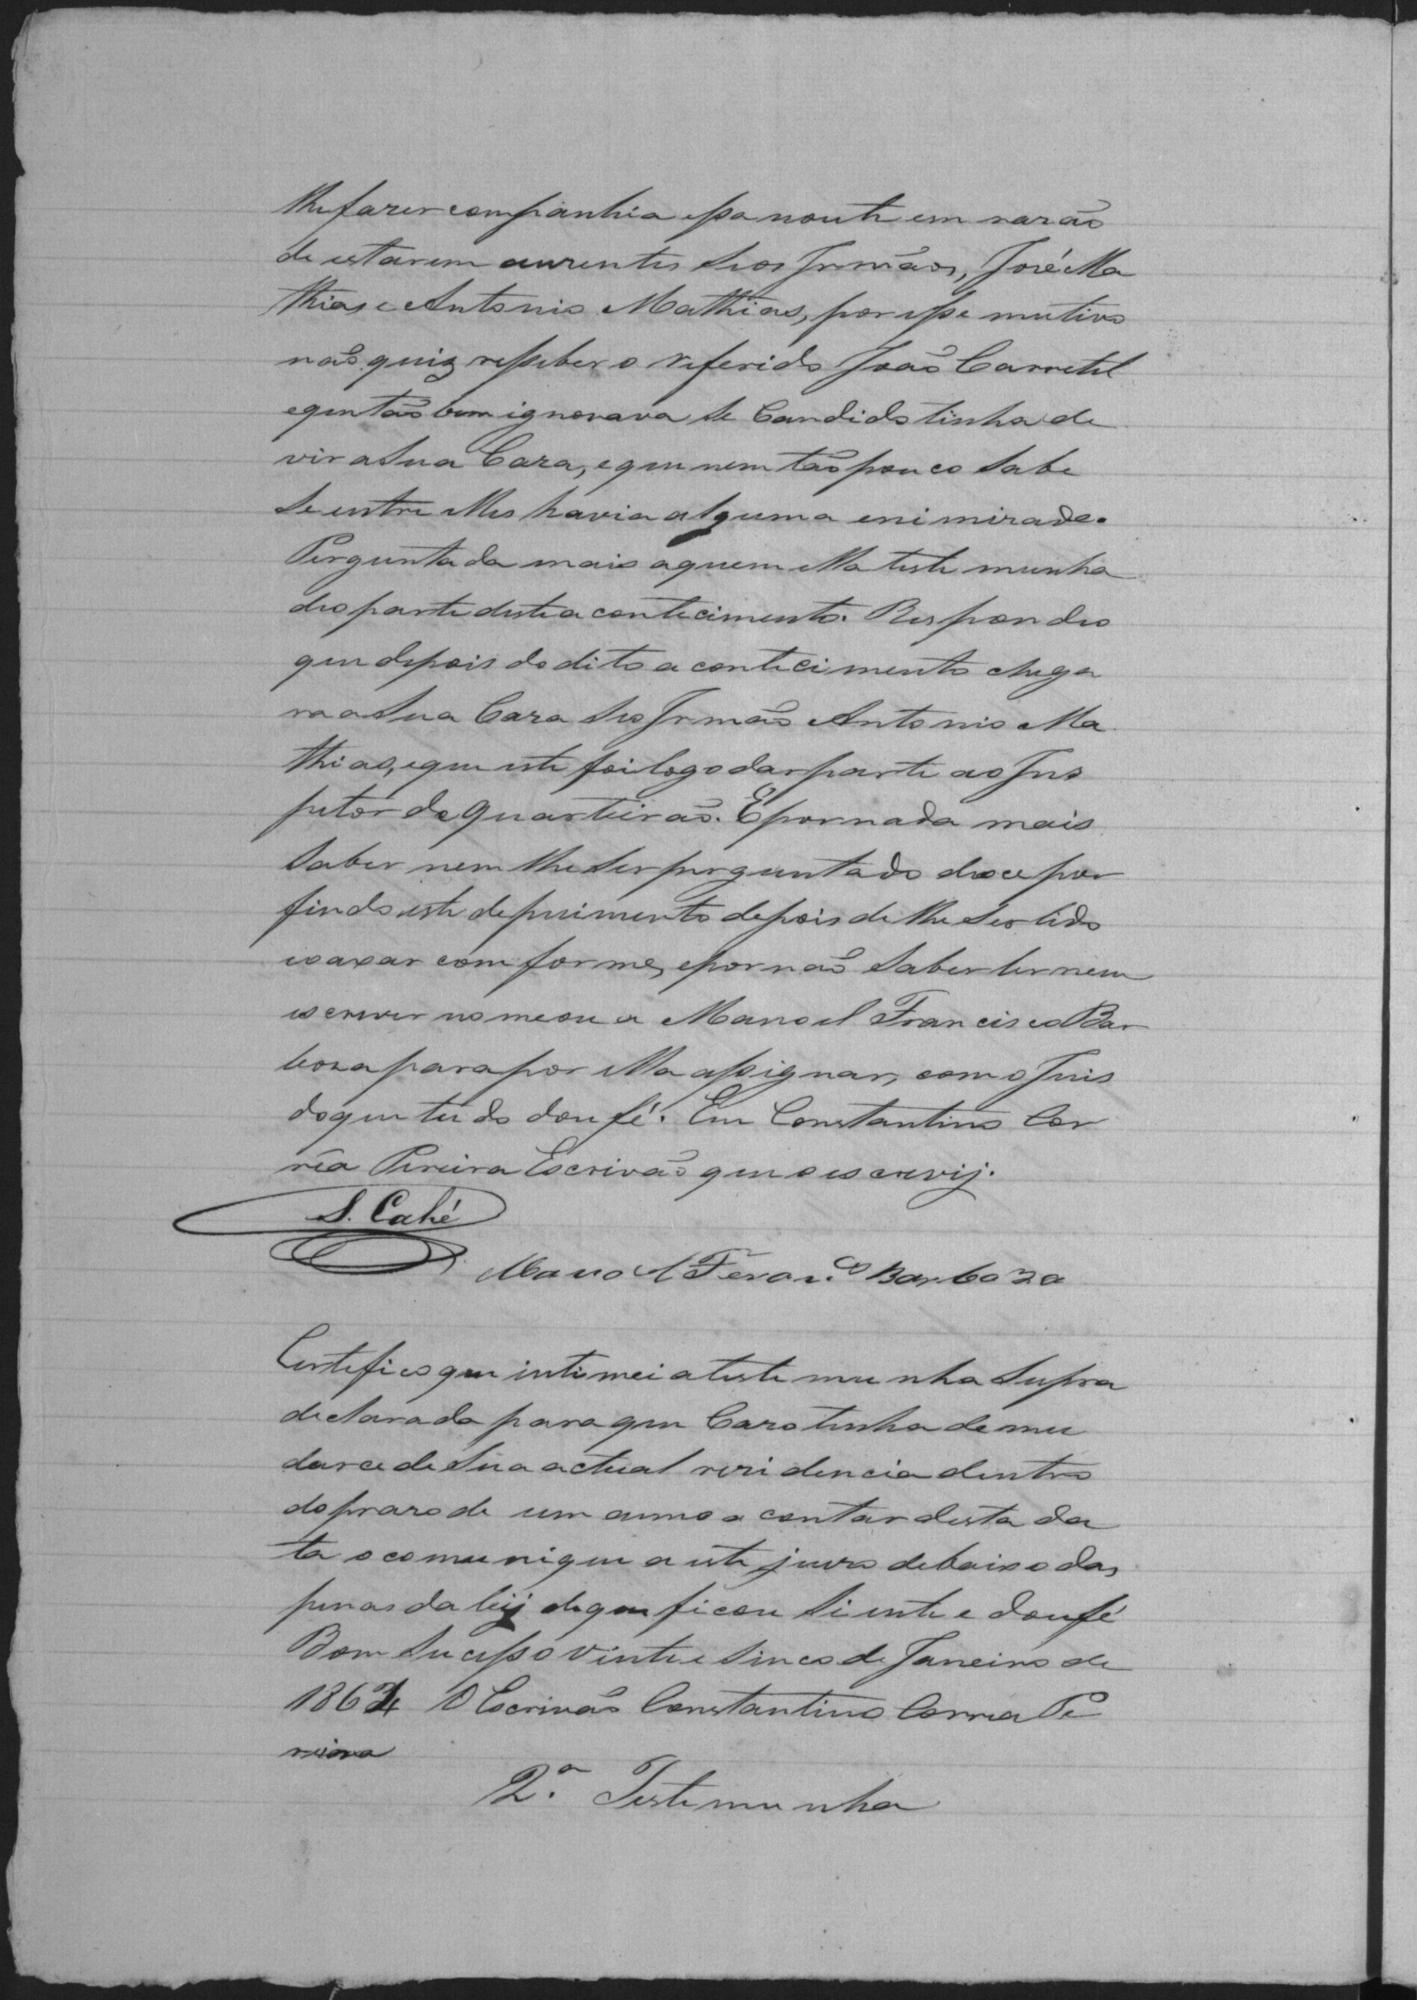 lhe fazer companhia essa noute em razão
de estarem auzentes Seos Irmãos, José Ma
thias e Antonio Mathias, por esse mutivo
não quiz resseber o referido João Carretel
e que tão bem ignorava se Candido tinha de
vir a Sua Caza, e que nem tão pouco Sabe
Se entre elles havia alguma enimizade.
Perguntada mais a quem ella testemunha
deo parte deste acontecimento. Respondeo
que depois do dito acontecimento chega
ra a Sua Caza Seo Irmão Antonio Ma
thias, e que este foi logo dar parte ao Ins
petor de Quarteirão. E por nada mais
Saber nem lhe Ser perguntado doce por
findo este depuimento depois de lhe Seo lido
e o axar comforme, e por não Saber ler nem
escrever nomeou a Manoel Francisco Bar
boza para por ella assignar, com o Juis
do que tudo dou fé. Eu Constantino Cor
rêa Pereira Escrivão que o escrevij.
S. Cahé
Manoel Feran.co Barboza
Certefico que intimei a testemunha Supra
declarada para que Cazo tenha de mu
darce de Sua actual rezidencia dentro
do prazo de um anno a contar desta da
ta o comunique a este juizo debaixo das
penas da leij de que ficou Siente e dou fé
Bom Sucesso vinte e Sinco de Janeiro de
1864 O Escrivão Constantino Correa Pe
reira
2.a Testemunha